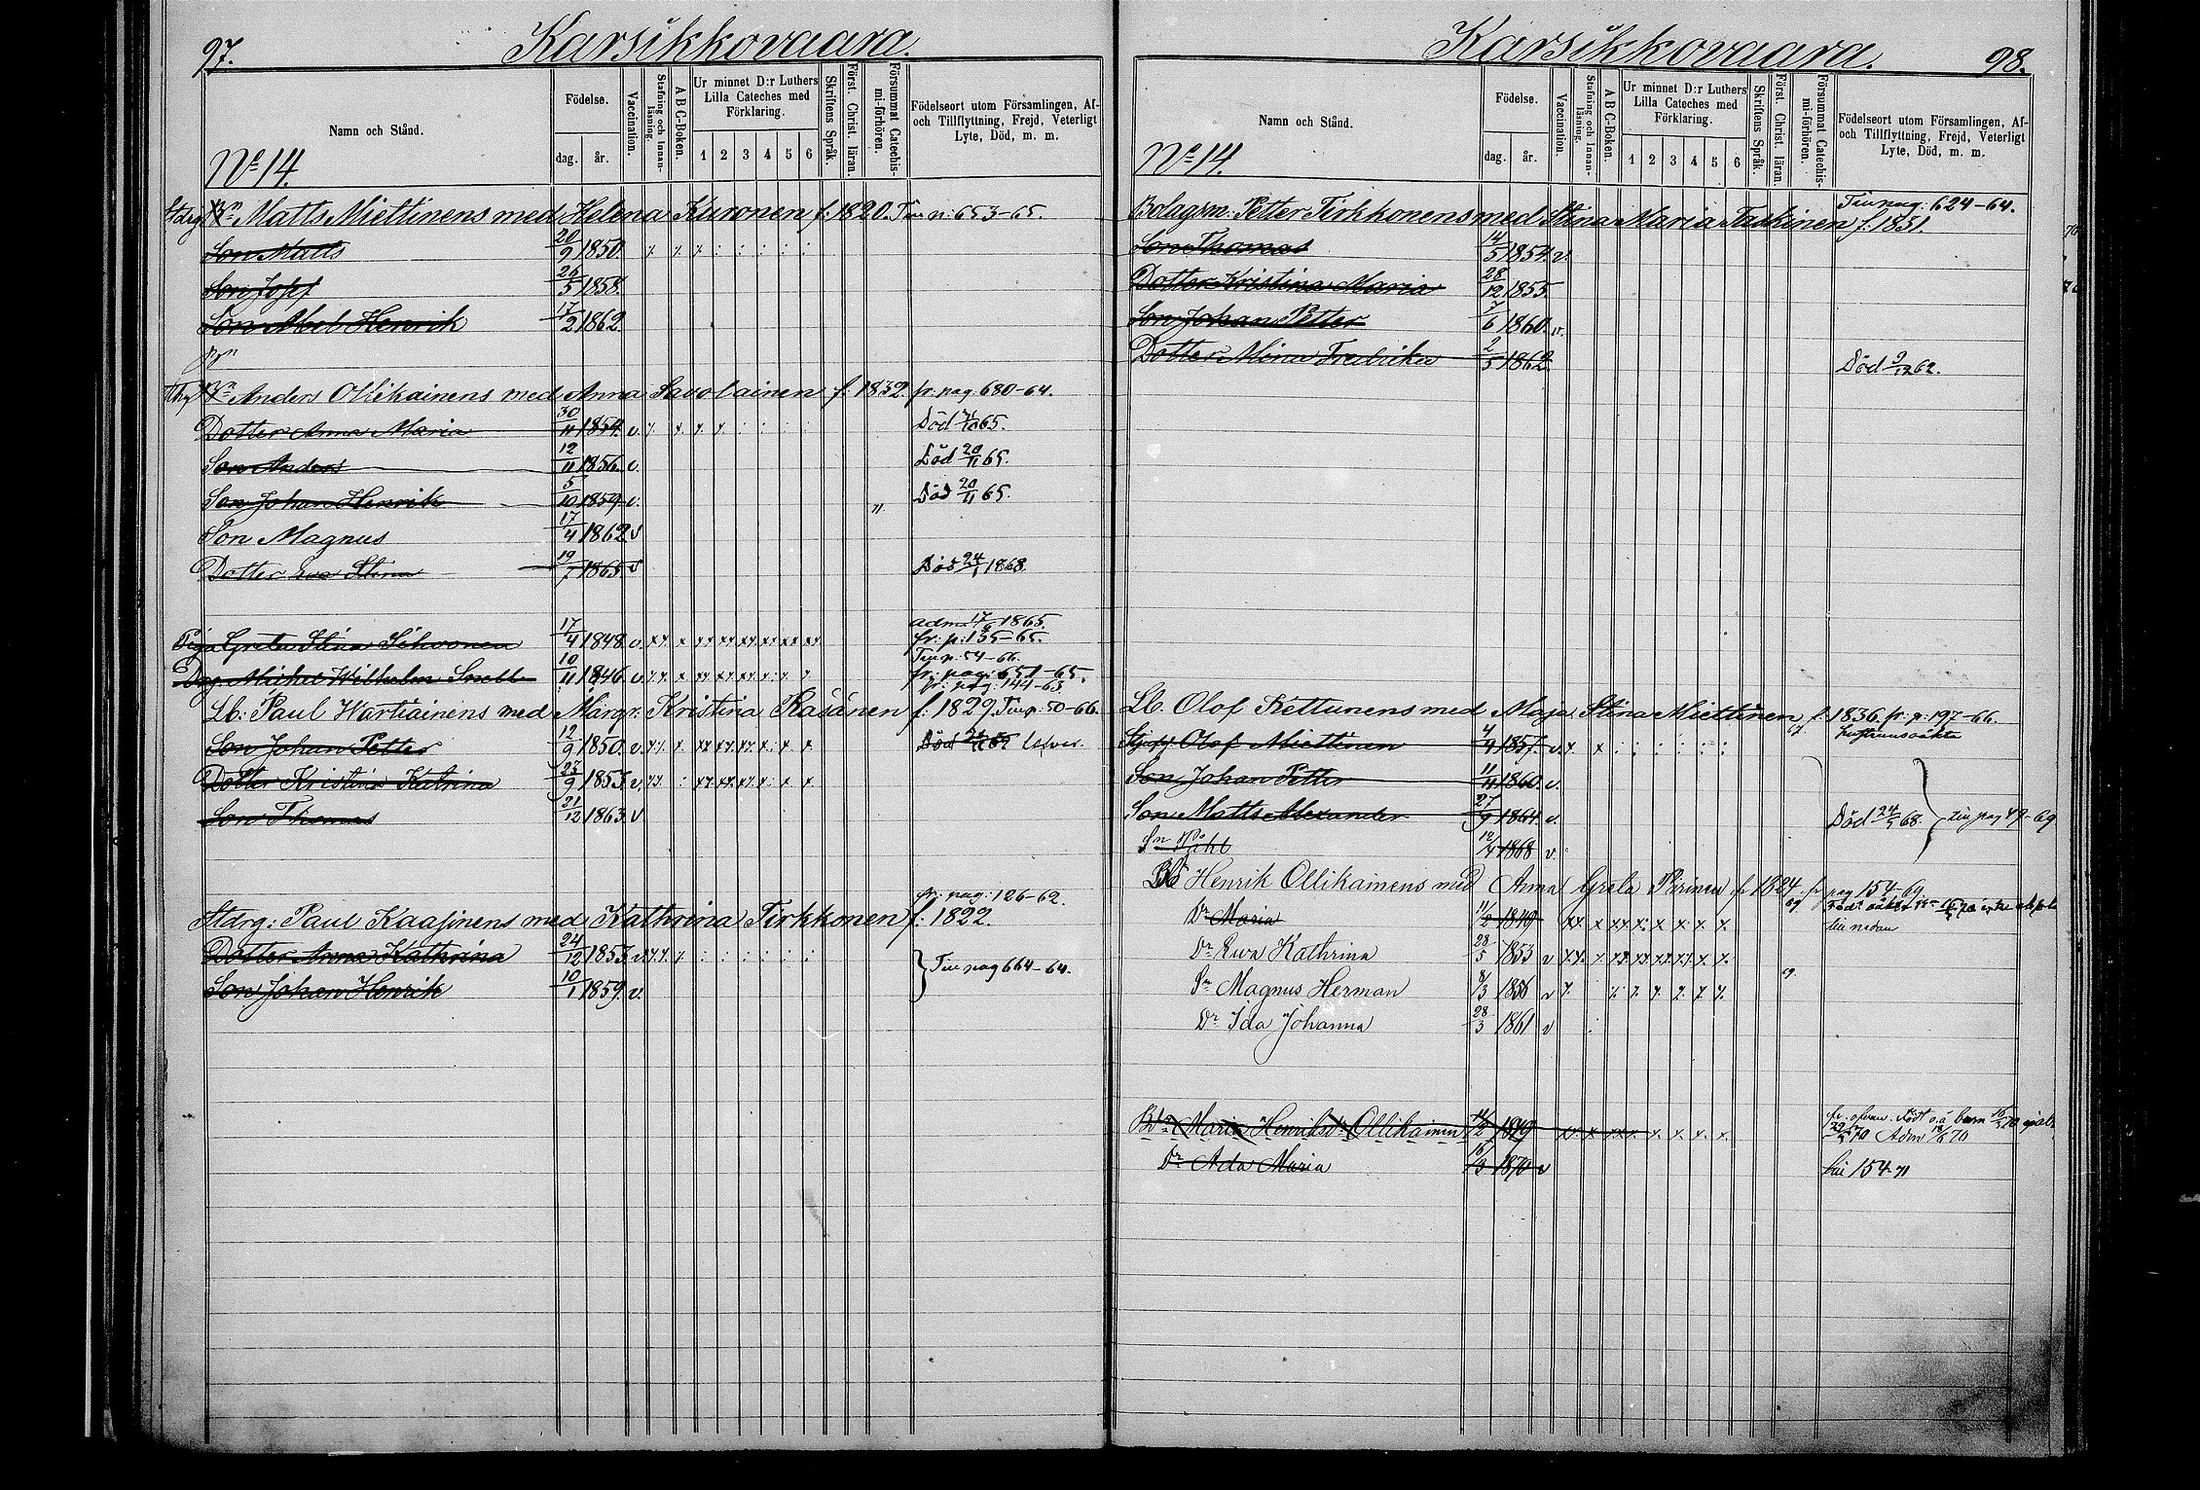 97.
Karsikkovaara.
Namn och Stånd.
Födelse.
dag.
år.
Vaccination.
Stafning och Innan-läsning.
A B C-Boken.
Ur minnet D:r Luthers
Lilla Cateches med
Förklaring.
1 2 3 4 5 6
Skriftens Språk.
Först. Christ. läran.
Försummat Catechis-mi-förhören.
Födelseort utom Församlingen, Af-
och Tillflyttning, Frejd, Veterligt
Lyte, Död, m. m.
No 14.
Matts Miettinens med Helena Kuronen f. 1820. 653-65.
Son Matts 20/9 1850.
Son Josef 26/5 1858.
Son Abel Henrik 17/2 1862.
Anders Ollikainens med Anna Savolainen f. 1832. fr. pag 680-64.
Dotter Anna Maria 30/11 1854. v. Död 65.
Son Anders 12/11 1856. v. Död 20/11 65.
Son Johan Henrik 5/10 1859. v. Död 20/11 65.
Son Magnus 17/4 1862 v
Dotter Eva Stina 19/7 1865. v Död 24/1 1868.
adm 1865.
Piga Greta Stina Sihvonen 17/4 1848. v. fr. p. 135-65.
54-66.
Drg. Michel Wilhelm Snell 10/11 1846. v. fr. pag. 651-65.
fr. pag. 144-63.
Lb. Paul Wartiainens med Margr. Kristina Räsänen f. 1829. 50-66.
Son Johan Petter 12/9 1850. v. Död
Dotter Kristina Katrina 23/9 1853. v.
Son Thomas 21/12 1863 v
fr. pag: 126-62.
Stdrg: Paul Kaasinens med Kathrina Tirkkonen f. 1822.
Dotter Anna Kathrina 24/12 1853. v
Son Johan Henrik 10/1 1859. v. pag 664-64.
Karsikkovaara.
98.
Namn och Stånd.
Födelse.
dag.
år.
Vaccination.
Stafning och Innan-läsning.
A B C-Boken.
Ur minnet D:r Luthers
Lilla Cateches med
Förklaring.
1 2 3 4 5 6
Skriftens Språk.
Först. Christ. läran.
Försummat Catechis-mi-förhören.
Födelseort utom Församlingen, Af-
och Tillflyttning, Frejd, Veterligt
Lyte, Död, m. m.
No 14.
pag: 624-64.
Bolagsm. Petter Tirkkonens med Stina Maria Taskinen f. 1831.
Son Thomas 14/5 1854. v.
Dotter Kristina Maria 28/12 1855.
Son Johan Petter 7/6 1860. v.
Dotter Mina Fredrika 2/5 1862. Död 9/12 62.
Lb. Olof Kettunens med Maja Stina Miettinen f. 1836. fr. p. 197-66.
Olof Miettinen 4/9 1857. v.
Son Johan Petter 11/11 1860. v.
Son Matts Alexander 27/9 1864. v. Död 24/5 68. pag 49-69
Sn Påhl 12/4 1868 v.
Henrik Ollikainens med Anna Greta Piirinen f. 1824. fr pag 154-69.
Dr Maria 11/2 1849
nedan
Dr Ewa Kathrina 28/5 1853 v
Sn Magnus Herman 8/3 1856 v
Dr Ida Johanna 28/3 1861 v
Maria Henriksdr Ollikainen 11/2 1849 barn
Adm 70
Dr Ada Maria 16/3 1870 v 154-71